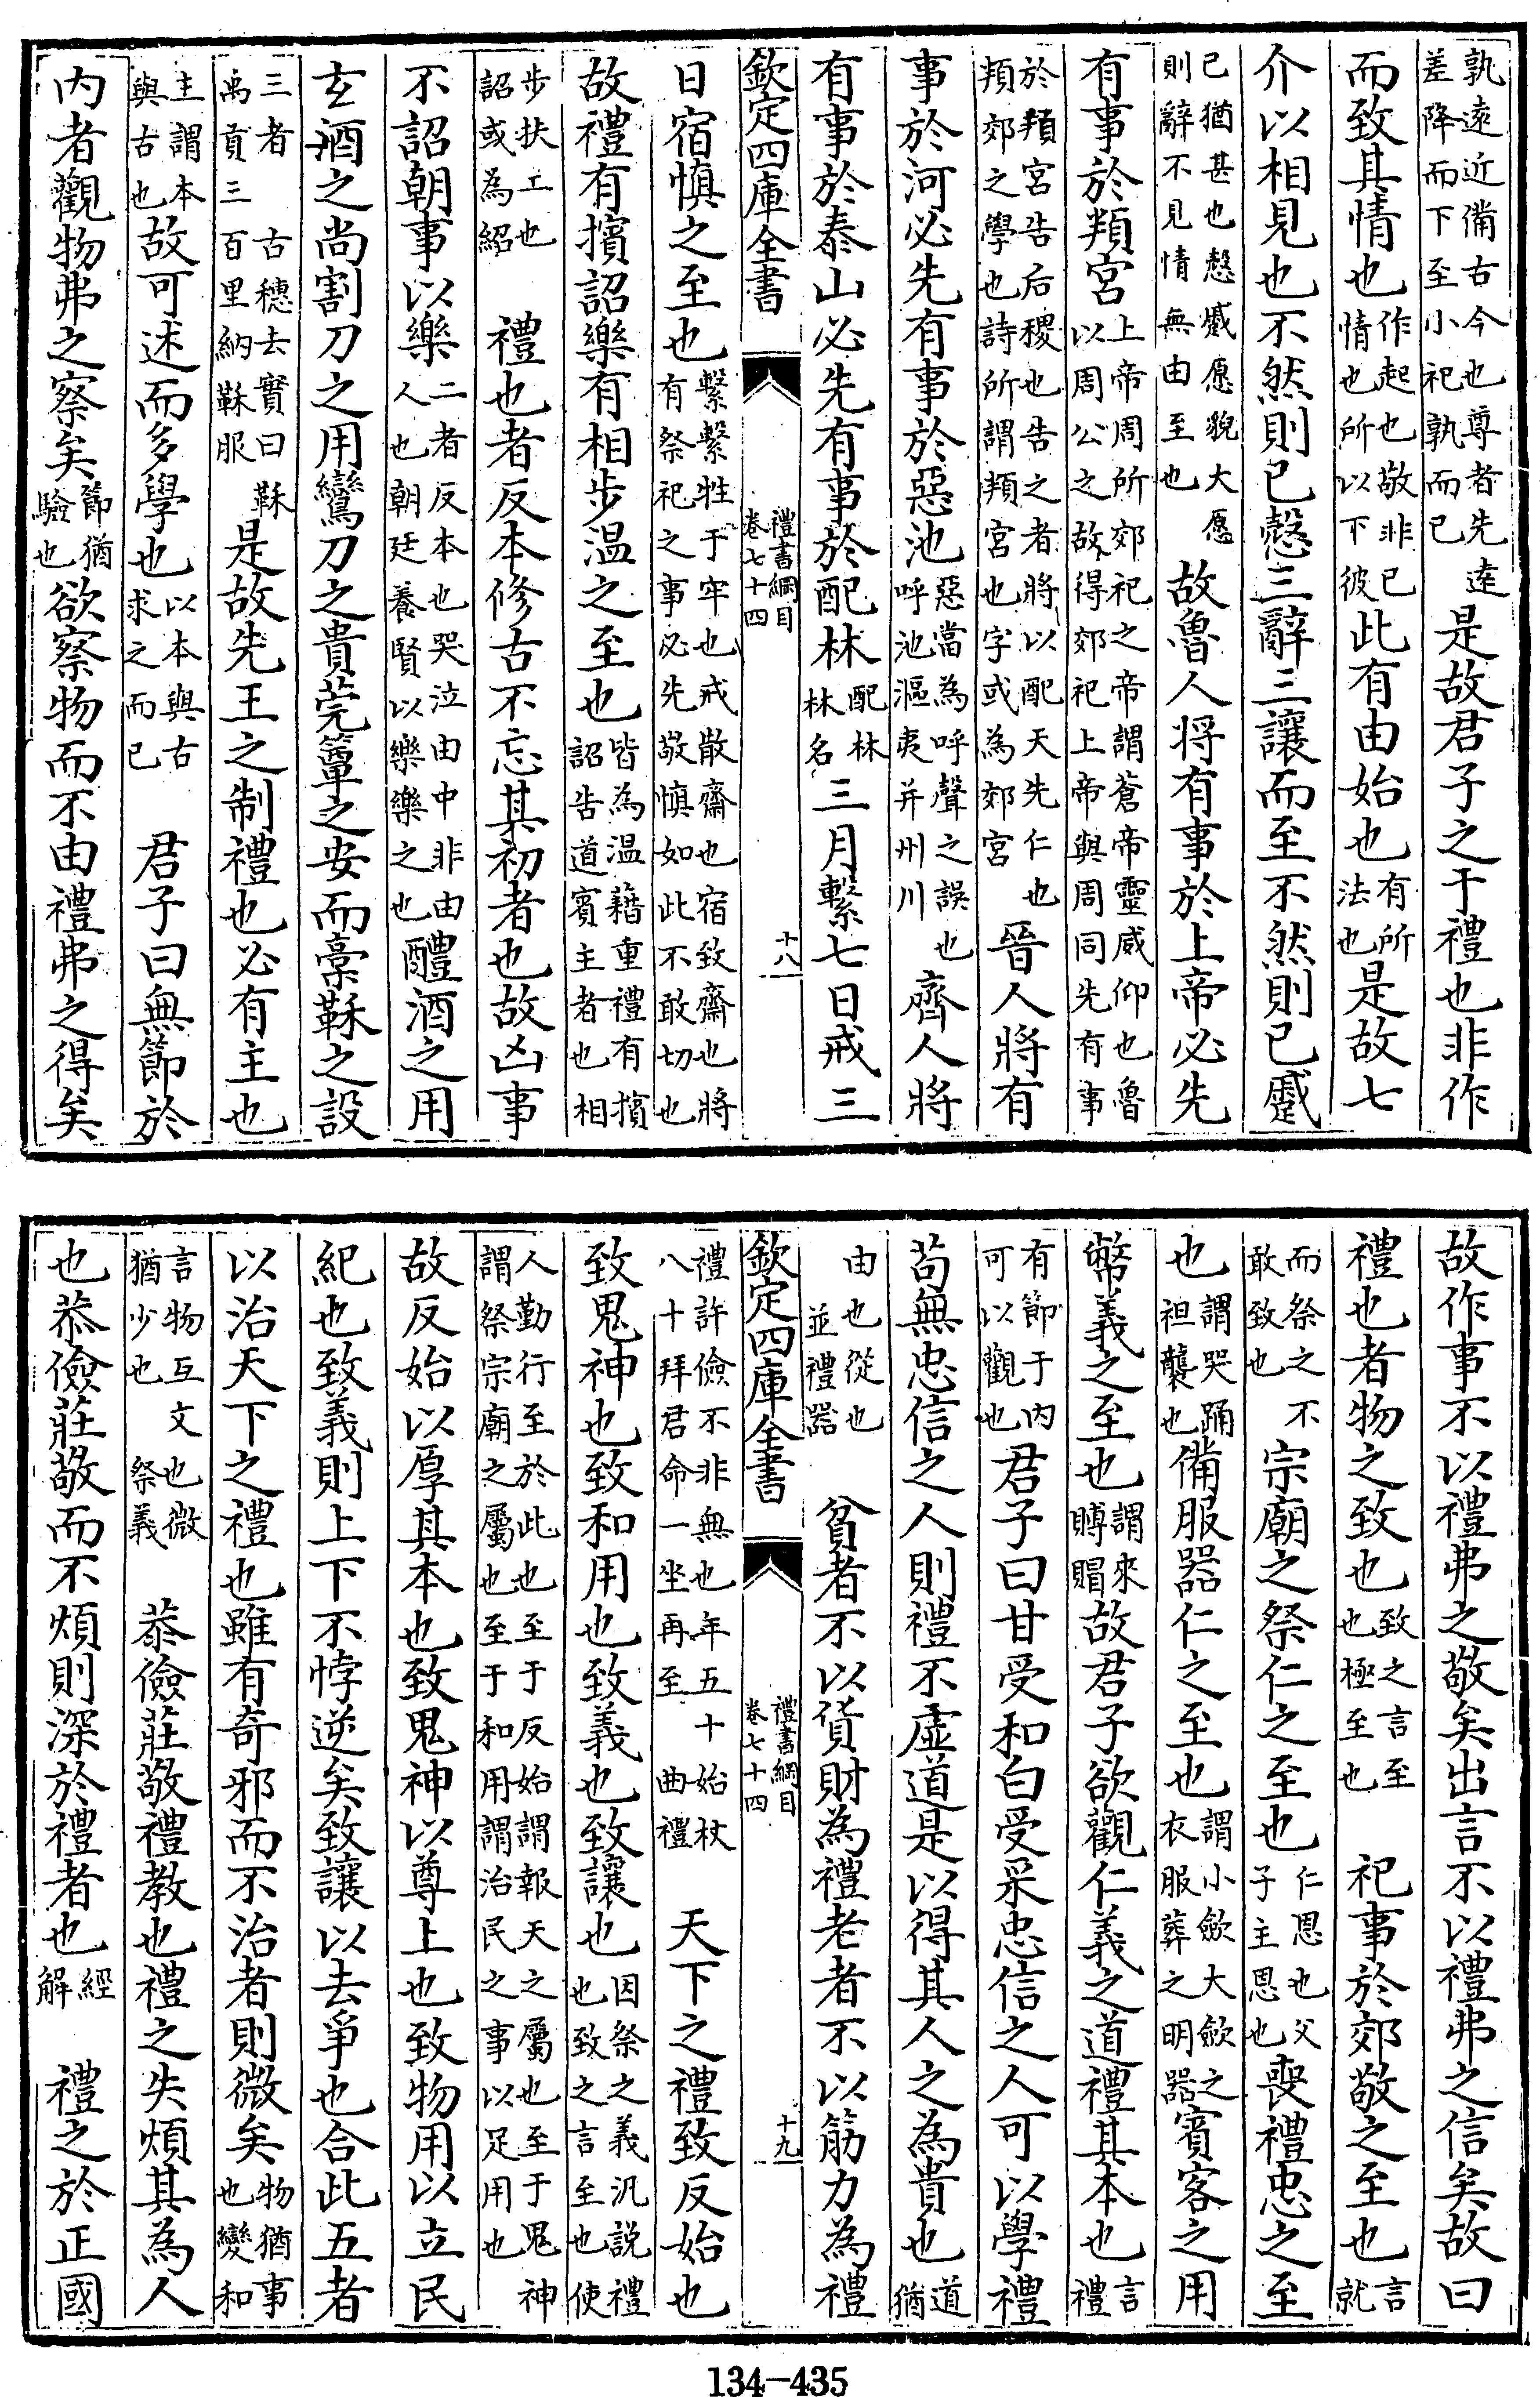 孰遠近備古今也尊者先逺差降而下至小祀孰而已是故君子之于禮也非作
而致其情也作起也敬非已情也所以下彼此有由始也有所法也是故七
介以相見也不然則已慤三辭三讓而至不然則已蹙
已猶甚也慤蹙愿貌大愿則辭不見情無由至也故魯人將有事於上帝必先
有事於頖宫上帝周所郊祀之帝謂蒼帝靈威仰也魯以周公之故得郊祀上帝與周同先有事
於頖宫告后稷也告之者將以配天先仁也頖郊之學也詩所謂頖宫也字或為郊宫晉人將有
事於河必先有事於惡池惡當為呼聲之誤也呼池漚夷并州川齊人將
有事於泰山必先有事於配林配林林名三月繫七日戒三
欽定四庫全書
禮書綱目
卷七十四
十八
日宿慎之至也繫繫牲于牢也戒散齋也宿致齋也將有祭祀之事必先敬慎如此不敢切也
故禮有擯詔樂有相步温之至也皆為温藉重禮有擯詔告道賓主者也相
步扶工也詔或為紹 禮也者反本修古不忘其初者也故凶事
不詔朝事以樂二者反本也哭泣由中非由人也朝廷養賢以樂樂之也醴酒之用
玄酒之尚割刀之用鸞刀之貴莞簟之安而稾鞂之設
三者古穗去實曰鞂禹貢三百里納鞂服是故先王之制禮也必有主也
主謂本與古也故可述而多學也以本與古求之而已 君子曰無節於
内者觀物弗之察矣節猶驗也欲察物而不由禮弗之得矣
故作事不以禮弗之敬矣出言不以禮弗之信矣故曰
禮也者物之致也致之言至也極至也 祀事於郊敬之至也言就
而祭之不敢致也宗廟之祭仁之至也仁恩也父子主恩也喪禮忠之至
也謂哭踊袒襲也備服器仁之至也謂小歛大歛之衣服葬之明器賓客之用
幣義之至也謂來賻賵故君子欲觀仁義之道禮其本也言禮
有節于内可以觀也君子曰甘受和白受采忠信之人可以學禮
苟無忠信之人則禮不虚道是以得其人之為貴也道猶
由也從也並禮器 貧者不以貨財為禮老者不以筋力為禮
欽定四庫全書
禮書綱目
卷七十四
十九
禮許儉不非無也年五十始杖八十拜君命一坐再至曲禮 天下之禮致反始也
致鬼神也致和用也致義也致讓也因祭之義汎説禮也致之言至也使
人勤行至於此也至于反始謂報天之屬也至于鬼神謂祭宗廟之屬也至于和用謂治民之事以足用也
故反始以厚其本也致鬼神以尊上也致物用以立民
紀也致義則上下不悖逆矣致讓以去爭也合此五者
以治天下之禮也雖有奇邪而不治者則微矣物猶事也變和
言物互文也微猶少也祭義 恭儉莊敬禮教也禮之失煩其為人
也恭儉莊敬而不煩則深於禮者也經解 禮之於正國
134-435